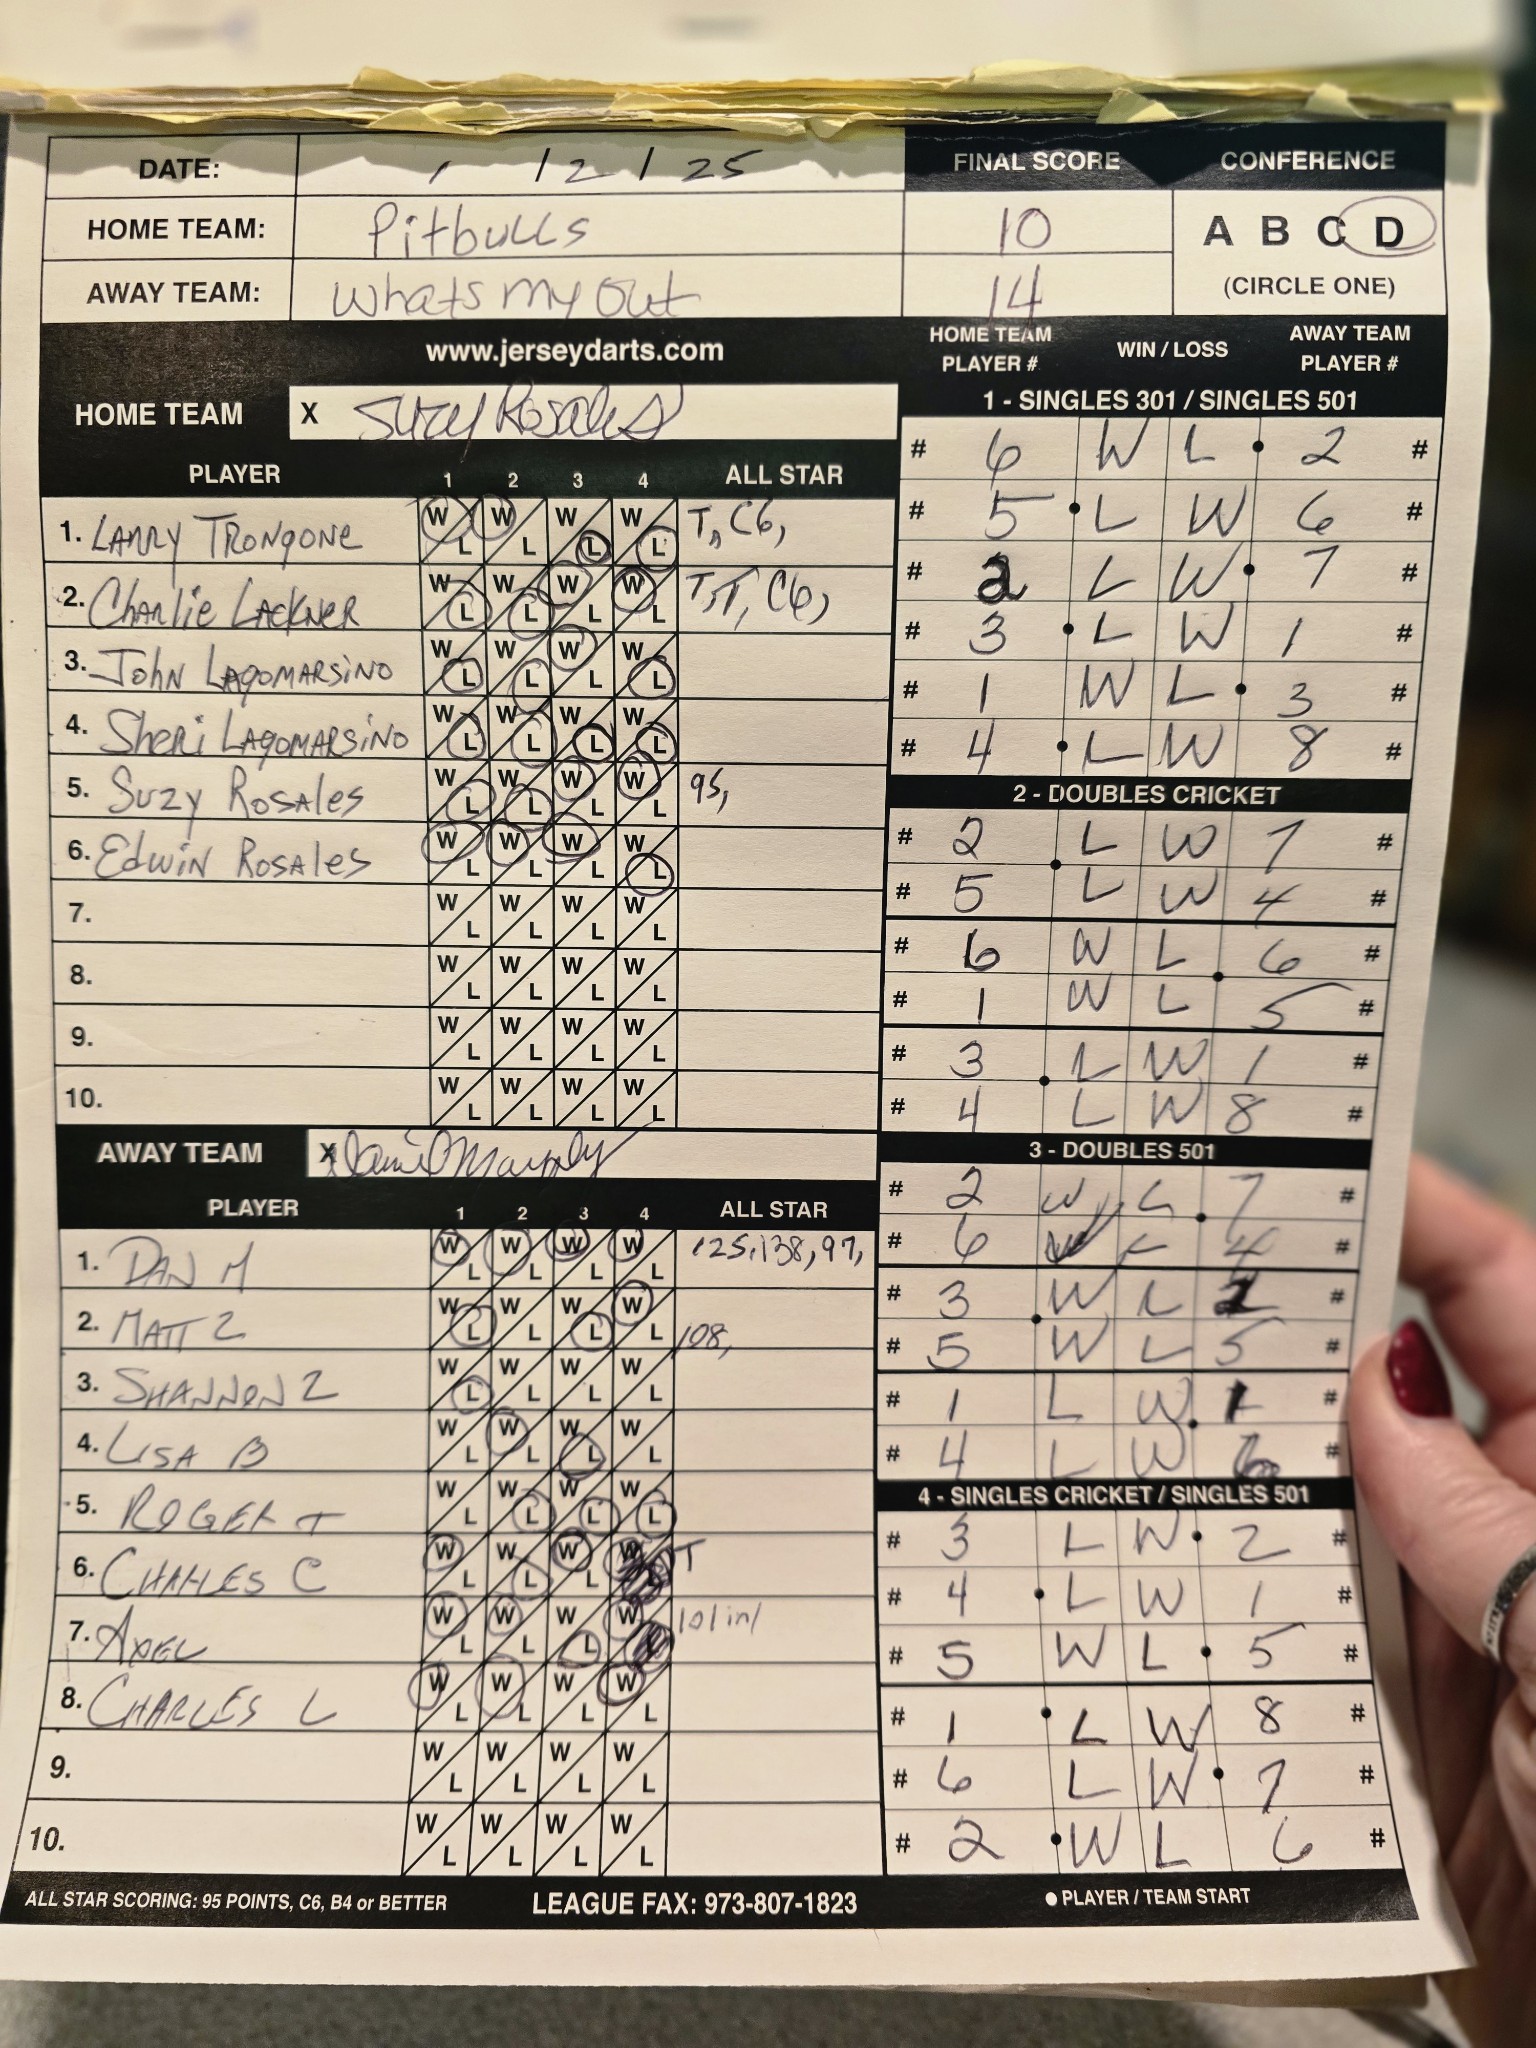 DATE: 1 12 / 25 FINAL SCORE CONFERENCE
HOME TEAM: Pitbulls 10 A B C D
AWAY TEAM: Whats my Out 14 (CIRCLE ONE)
www.jerseydarts.com HOME TEAM PLAYER # WIN / LOSS AWAY TEAM PLAYER #
HOME TEAM X Suzy Rosales
PLAYER 1 2 3 4 ALL STAR
1. LARRY TRONGONE W L W L W L W L T, C6,
2. Charlie LACKNER W L W L W L W L T, T, C6,
3. John LAGOMARSINO W L W L W L W L
4. Sheri LAGOMARSINO W L W L W L W L
5. Suzy Rosales W L W L W L W L 95,
6. Edwin Rosales W L W L W L W L
7. W L W L W L W L
8. W L W L W L W L
9. W L W L W L W L
10. W L W L W L W L
AWAY TEAM X
PLAYER 1 2 3 4 ALL STAR
1. DAN M W L W L W L W L 125, 138, 97,
2. MATT Z W L W L W L W L 108,
3. SHANNON Z W L W L W L W L
4. LISA B W L W L W L W L
5. ROGER T W L W L W L W L
6. CHARLES C W L W L W L W T
7. AXEL W L W L W L W 101 in/
8. CHARLES L W L W L W L W L
9. W L W L W L W L
10. W L W L W L W L
1 - SINGLES 301 / SINGLES 501
# 6 W L 2 #
# 5 L W 6 #
# 2 L W 7 #
# 3 L W 1 #
# 1 W L 3 #
# 4 L W 8 #
2 - DOUBLES CRICKET
# 2 L W 7 #
# 5 L W 4 #
# 6 W L 6 #
# 1 W L 5 #
# 3 L W 1 #
# 4 L W 8 #
3 - DOUBLES 501
# 2 W L 7 #
# 6 W L 4 #
# 3 W L 2 #
# 5 W L 5 #
# 1 L W 1 #
# 4 L W 6 #
4 - SINGLES CRICKET / SINGLES 501
# 3 L W 2 #
# 4 L W 1 #
# 5 W L 5 #
# 1 L W 8 #
# 6 L W 7 #
# 2 W L 6 #
ALL STAR SCORING: 95 POINTS, C6, B4 or BETTER LEAGUE FAX: 973-807-1823 ● PLAYER / TEAM START